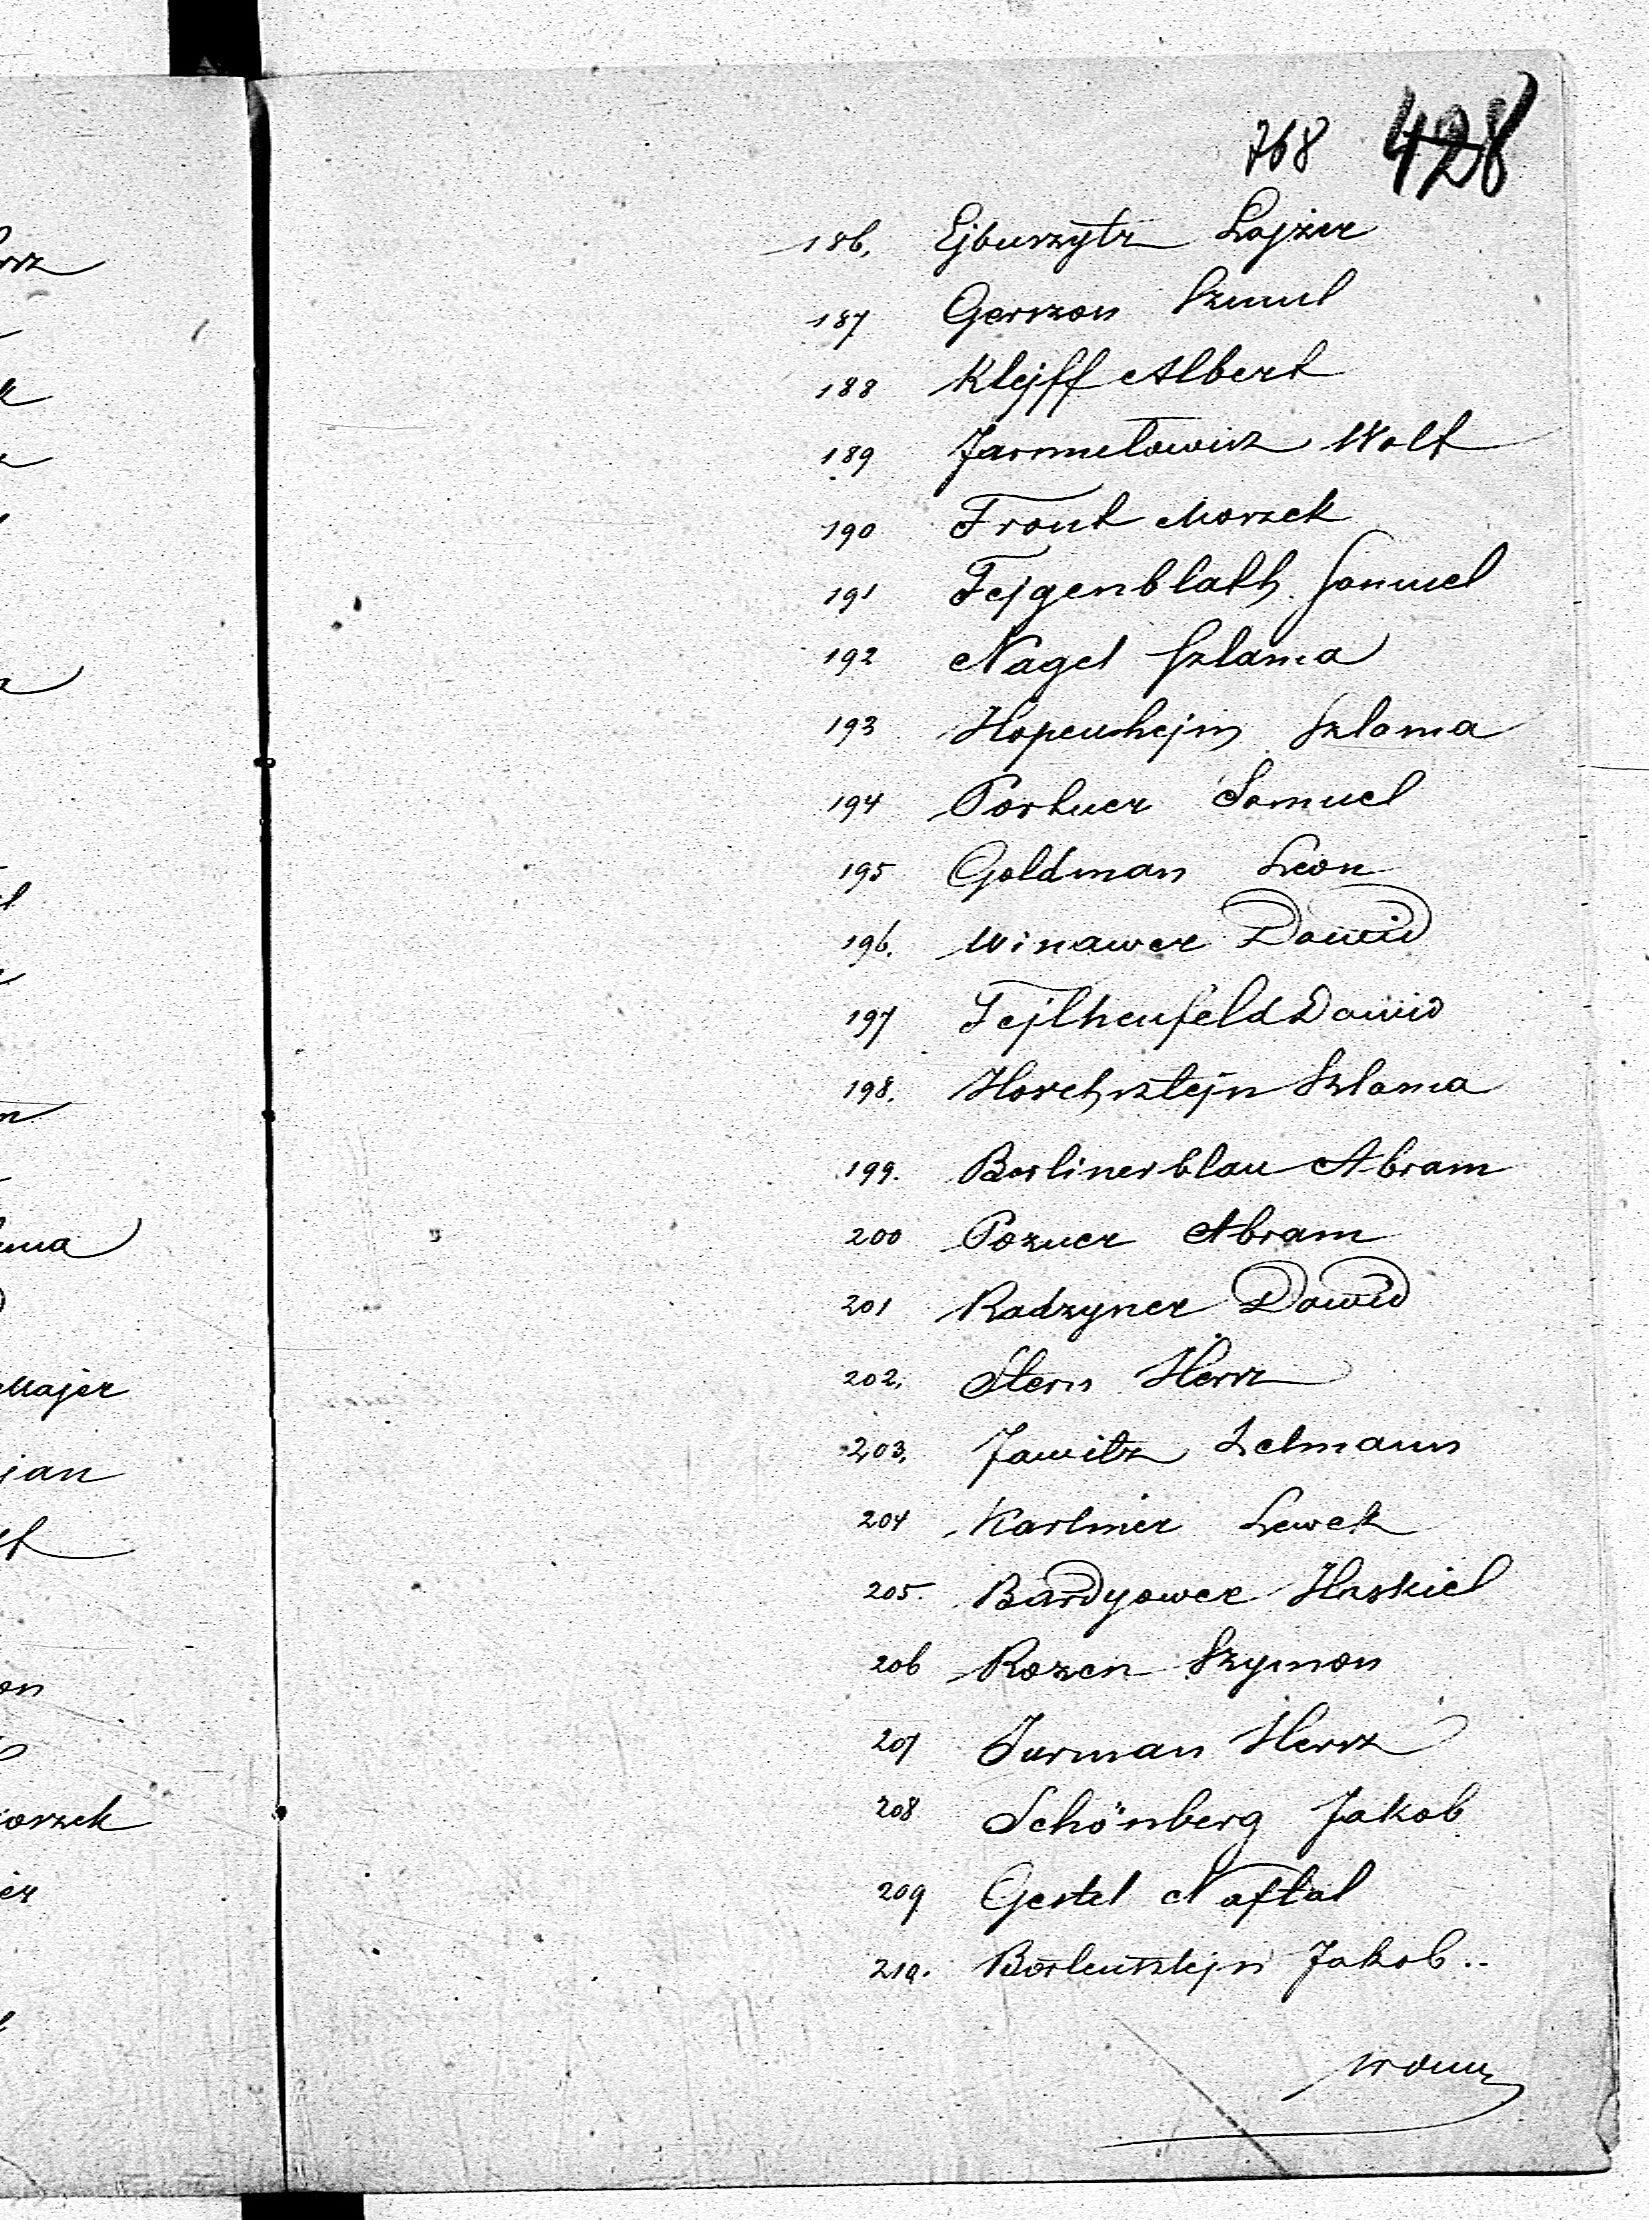 768 428
186. Ejbuszytz Lajzer
187 Gerszon Szmul
188 Klejff Albert
189 Jarmulowicz Wolf
190 Front Moszek
191 Fejgenblath Samuel
192 Nagel Szlama
193 Hopenhejm Szlama
194 Portner Samuel
195 Goldman Leon
196. Winawer Dawid
197 Tejlhenfeld Dawid
198. Horchsztejn Szlama
199. Berlinerblau Abram
200 Pozner Abram
201 Radzyner Dawid
202. Stern Hersz
203. Jawitz Lelmann
204 Karliner Lewek
205. Bardyower Haskiel
206 Rozen Szymon
207 Furman Hersz
208 Schönberg Jakob
209 Gestel Naftal
210. Borlensztejn Jakob
rsz
uma
Majer
jan
on
oszek